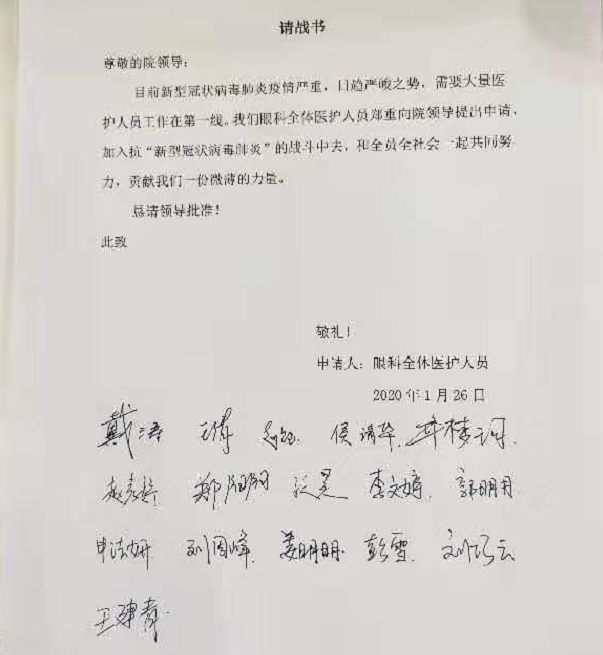 请战书
尊敬的院领导：
目前新型冠状病毒肺炎疫情严重，日趋严峻之势，需要大量医
护人员工作在第一线。我们眼科全体医护人员郑重向院领导提出申请、
加入抗“新型冠状病毒肺炎”的战斗中去，和全员全社会一起共同努
力，贡献我们一份微薄的力量。
恳请领导批准！
此致
敬礼！
申请人：眼科全体医护人员
2020 年 1 月 26 日
戴涛 侯清华
李文婷 郭明月
刘国峰 姜明明 彭雪 刘巧云
王建春